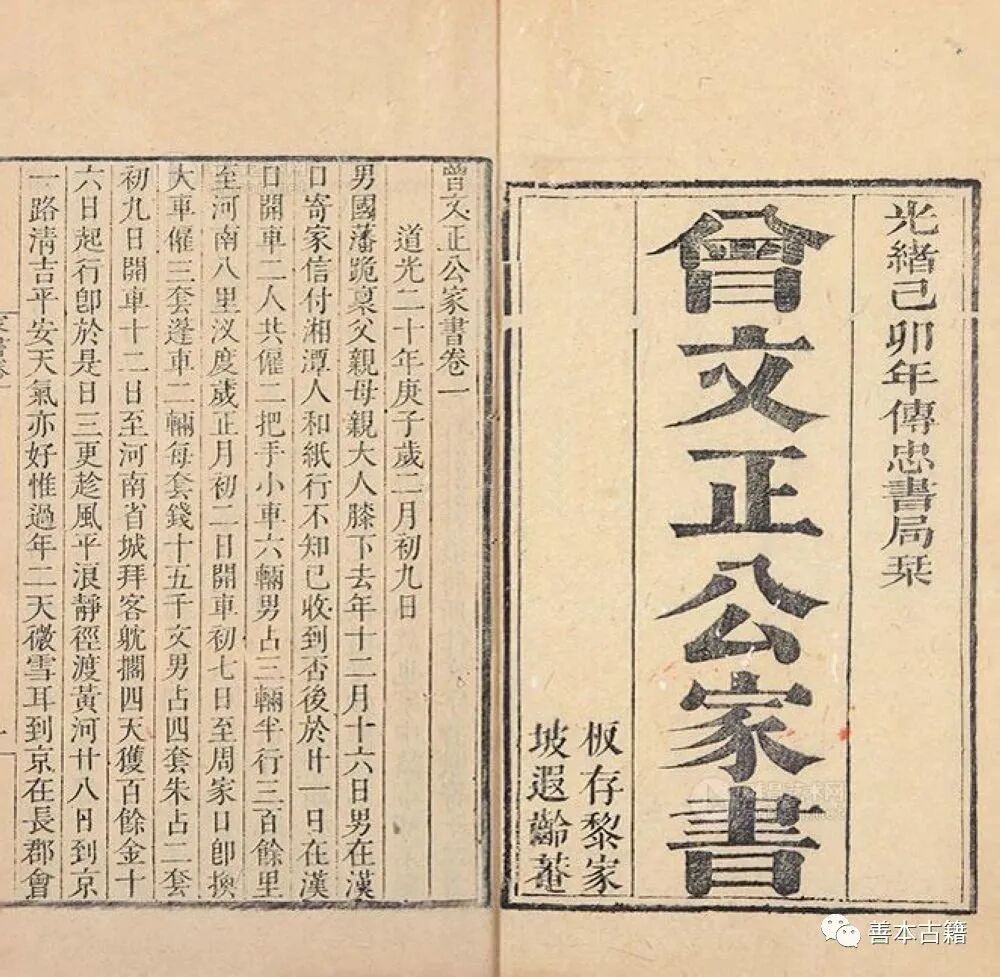 光緒己卯年傳忠書局栞
曾文正公家書
板存黎家
坡遐齡菴
曾文正公家書卷一
道光二十年庚子歲二月初九日
男國藩跪稟父親母親大人膝下去年十二月十六日男在漢
口寄家信付湘潭人和紙行不知已收到否後於廿一日在漢
口開車二人共僱二把手小車六輛男占三輛半行三百餘里
至河南八里汊度歲正月初二日開車初七日至周家口卽換
大車僱三套篷車二輛每套錢十五千文男占四套朱占二套
初九日開車十二日至河南省城拜客躭擱四天獲百餘金十
六日起行卽於是日三更趁風平浪靜徑渡黃河廿八日到京
一路淸吉平安天氣亦好惟過年二天微雪耳到京在長郡會
善本古籍